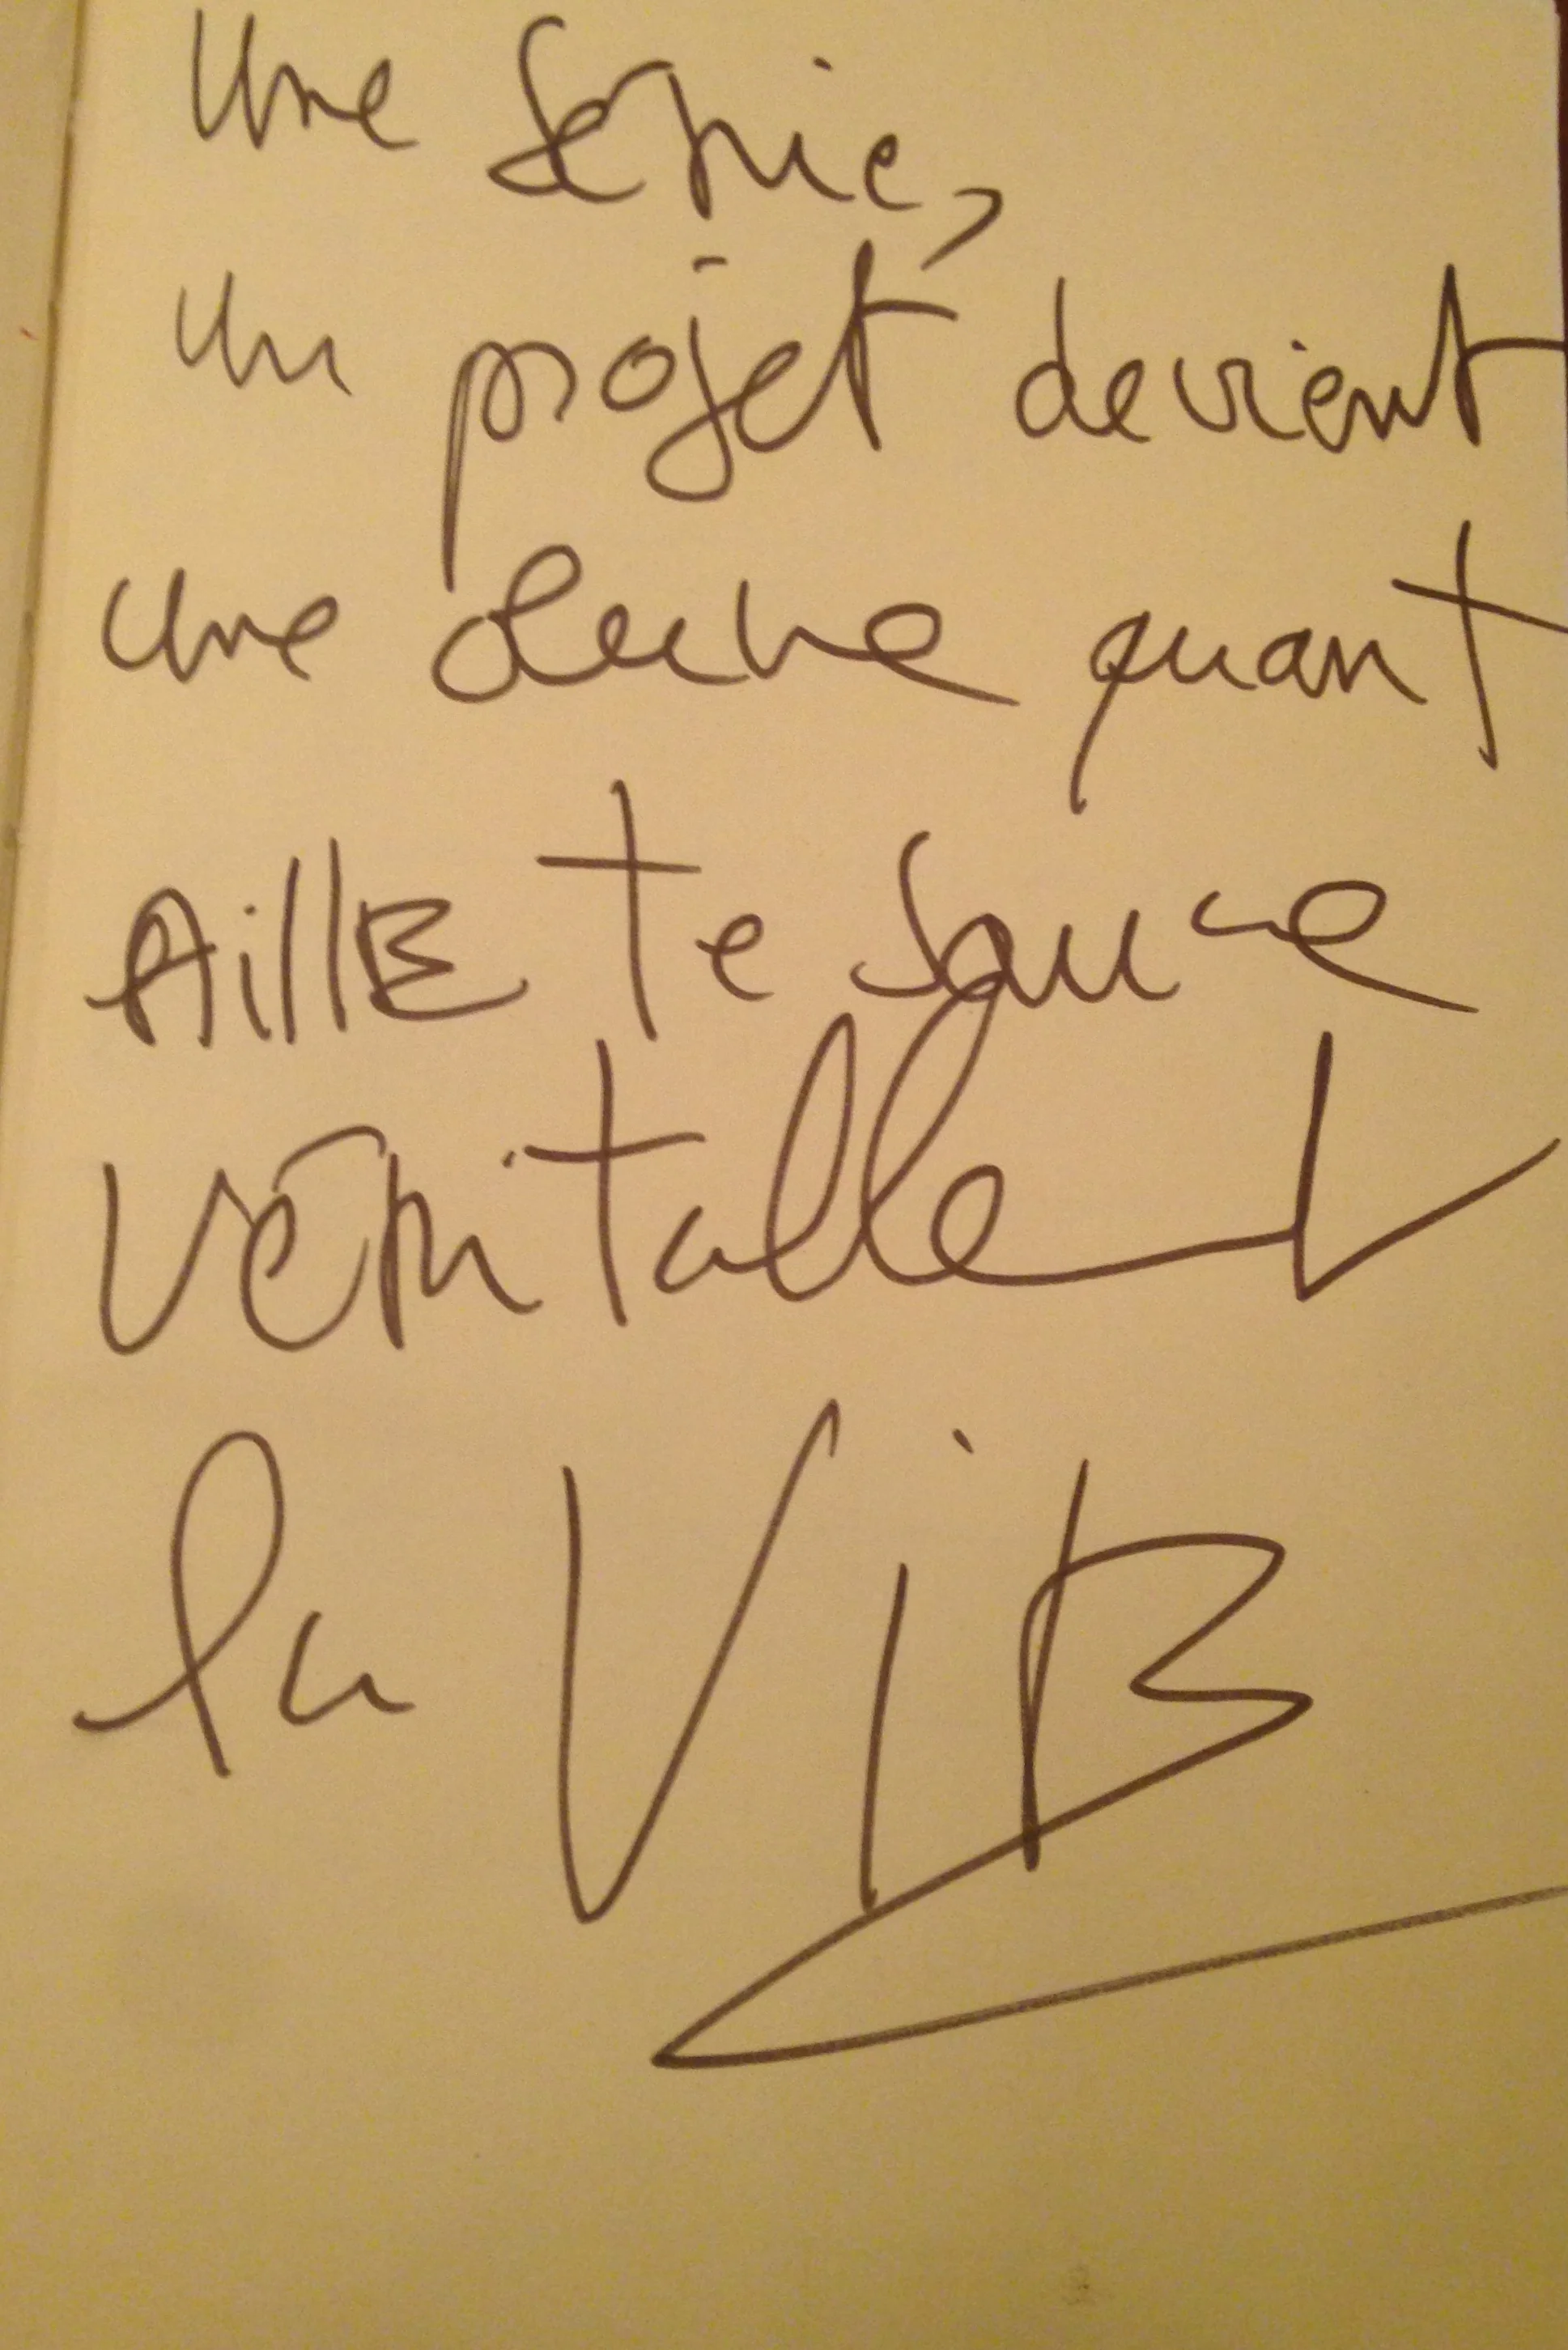 une série,
un projet devient
une œuvre quant
elle te sauve
véritablet
la ViE